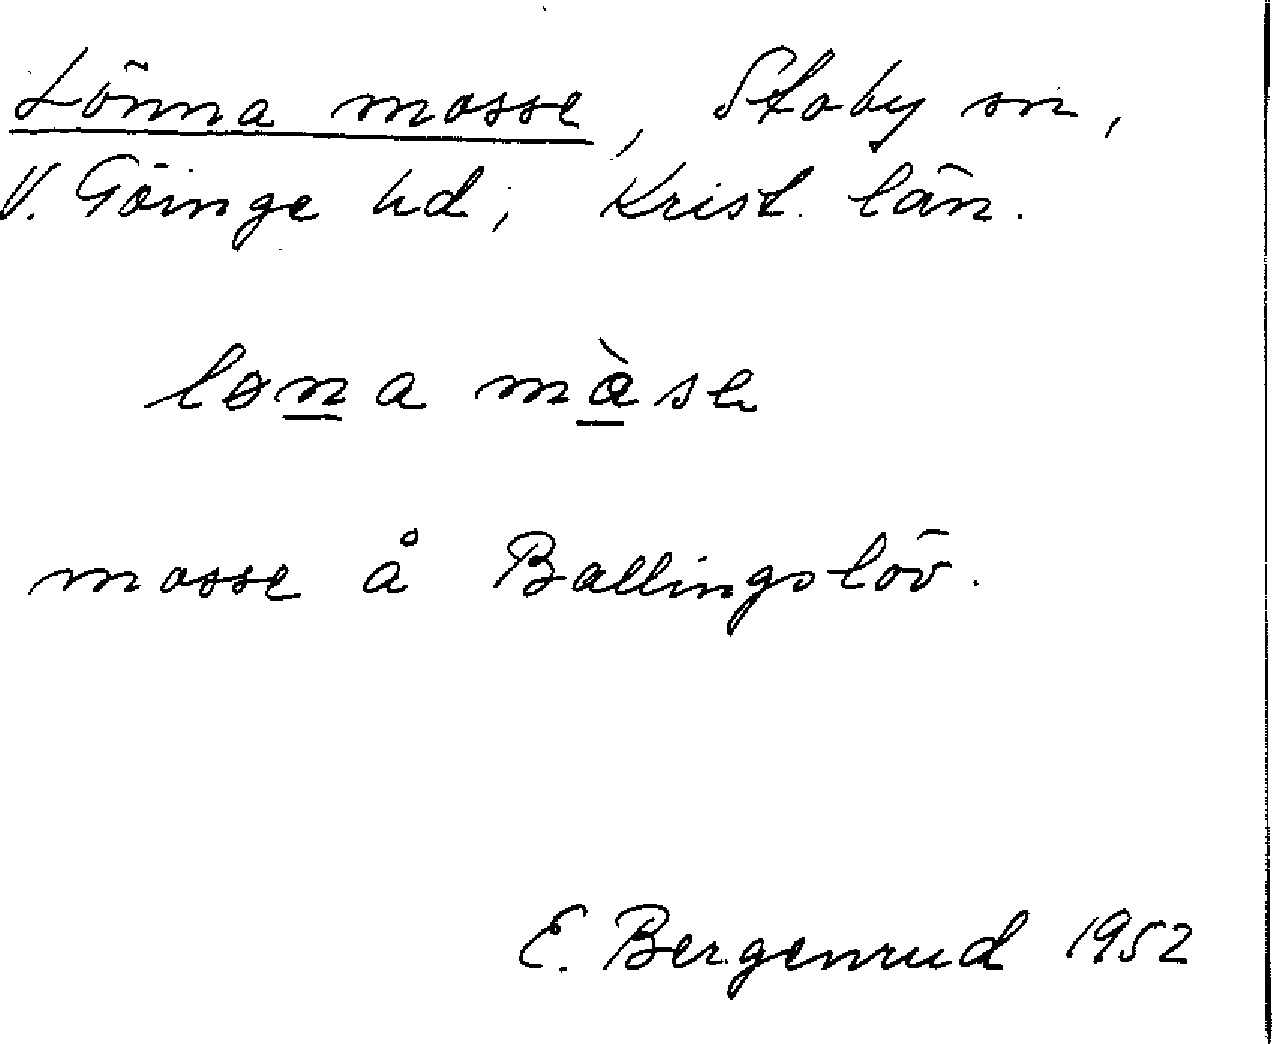 Lönna mosse, Stoby sn,
V. Göinge hd, Krist. län.
løna mòse
mosse å Ballingslöv.
E. Bergenrud 1952